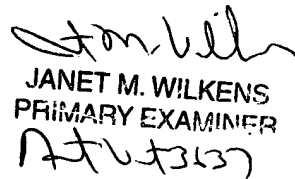 JANET M. WILKENS
PRIMARY EXAMINER
Art Unit 3637